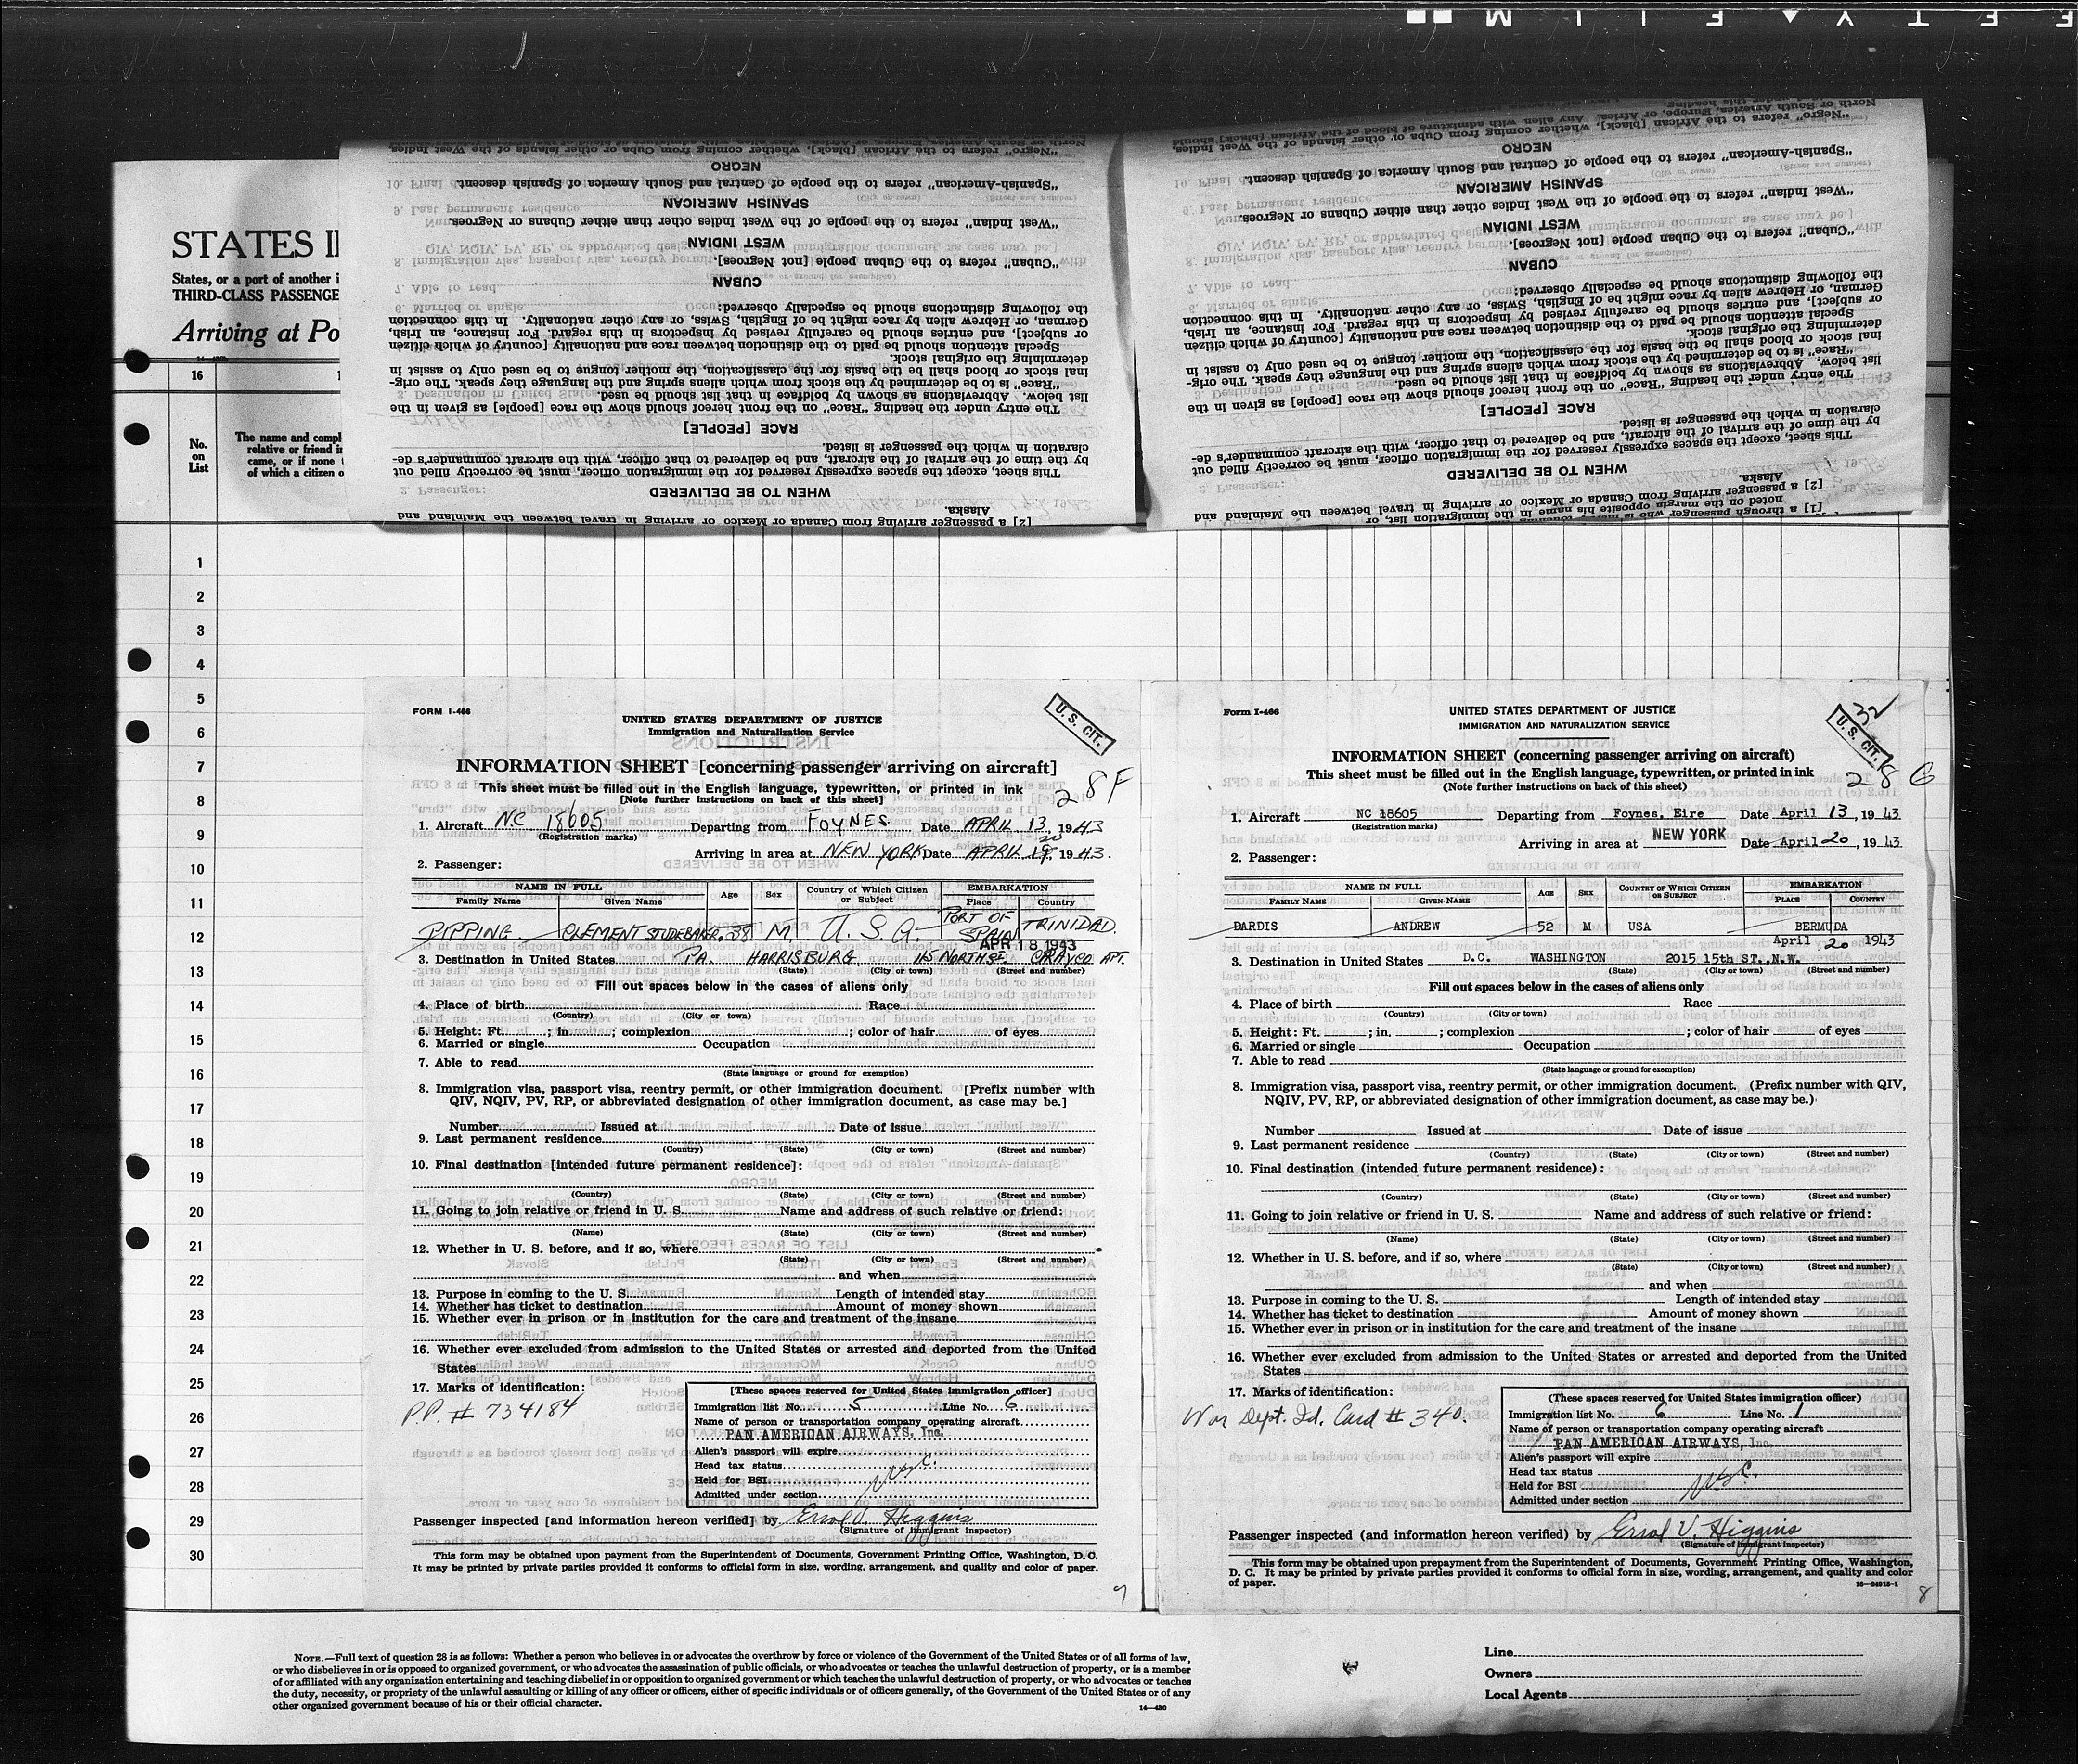 SAFETY FILM
STATES I
States, or a port of another i
THIRD-CLASS PASSENGE
Arriving at Po
16
No.
on
List
The name and compl
relative or friend i
came, or if none
of which a citizen o
[2] a passenger arriving from Canada or Mexico or arriving in travel between the Mainland and
Alaska.
WHEN TO BE DELIVERED
This sheet, except the spaces expressly reserved for the immigration officer, must be correctly filled out
by the time of the arrival of the aircraft, and be delivered to that officer, with the aircraft commander's de-
claration in which the passenger is listed.
RACE [PEOPLE]
The entry under the heading "Race" on the front hereof should show the race [people] as given in the
list below. Abbreviations as shown by boldface in that list should be used.
"Race" is to be determined by the stock from which aliens spring and the language they speak. The orig-
inal stock or blood shall be the basis for the classification, the mother tongue to be used only to assist in
determining the original stock.
Special attention should be paid to the distinction between race and nationality [country of which citizen
or subject], and entries should be carefully revised by inspectors in this regard. For instance, an Irish,
German, or Hebrew alien by race might be of English, Swiss, or any other nationality. In this connection
the following distinctions should be especially observed:
CUBAN
"Cuban" refers to the Cuban people [not Negroes].
WEST INDIAN
"West Indian" refers to the people of the West Indies other than either Cubans or Negroes.
SPANISH AMERICAN
"Spanish-American" refers to the people of Central and South America of Spanish descent.
NEGRO
"Negro" refers to the African [black], whether coming from Cuba or other islands of the West Indies,
[1] a through passenger who is
noted on the margin opposite his name in the immigration list, or
[2] a passenger arriving from Canada or Mexico or arriving in travel between the Mainland and
Alaska.
WHEN TO BE DELIVERED
This sheet, except the spaces expressly reserved for the immigration officer, must be correctly filled out
by the time of the arrival of the aircraft, and be delivered to that officer, with the aircraft commander's de-
claration in which the passenger is listed.
RACE [PEOPLE]
The entry under the heading "Race" on the front hereof should show the race [people] as given in the
list below. Abbreviations as shown by boldface in that list should be used.
"Race" is to be determined by the stock from which aliens spring and the language they speak. The orig-
inal stock or blood shall be the basis for the classification, the mother tongue to be used only to assist in
determining the original stock.
Special attention should be paid to the distinction between race and nationality [country of which citizen
or subject], and entries should be carefully revised by inspectors in this regard. For instance, an Irish,
German, or Hebrew alien by race might be of English, Swiss, or any other nationality. In this connection
the following distinctions should be especially observed:
CUBAN
"Cuban" refers to the Cuban people [not Negroes].
WEST INDIAN
"West Indian" refers to the people of the West Indies other than either Cubans or Negroes.
SPANISH AMERICAN
"Spanish-American" refers to the people of Central and South America of Spanish descent.
NEGRO
"Negro" refers to the African [black], whether coming from Cuba or other islands of the West Indies,
North or South America, Europe, or Africa. Any alien with admixture of blood of the African [black] should
1
2
3
4
5
6
7
8
9
10
11
12
13
14
15
16
17
18
19
20
21
22
23
24
25
26
27
28
29
30
FORM I-466
U. S. CIT.
UNITED STATES DEPARTMENT OF JUSTICE
Immigration and Naturalization Service
INFORMATION SHEET [concerning passenger arriving on aircraft]
28F
This sheet must be filled out in the English language, typewritten, or printed in ink
[Note further instructions on back of this sheet]
1. Aircraft NC 18605 Departing from FOYNES Date APRIL 13, 1943
(Registration marks)
Arriving in area at NEW YORK Date APRIL 19, 1943.
20
2. Passenger:
NAME IN FULL Age Sex Country of Which Citizen or Subject EMBARKATION
Family Name Given Name Place Country
PIPPING CLEMENT STUDEBAKER 38 M U. S. A. PORT OF SPAIN TRINIDAD.
APR 18 1943
3. Destination in United States PA. HARRISBURG 115 NORTH ST. CRAYCO APT.
(State) (City or town) (Street and number)
Fill out spaces below in the cases of aliens only
4. Place of birth Race
(Country) (City or town)
5. Height: Ft. ; in. ; complexion ; color of hair of eyes
6. Married or single Occupation
7. Able to read
(State language or ground for exemption)
8. Immigration visa, passport visa, reentry permit, or other immigration document. [Prefix number with
QIV, NQIV, PV, RP, or abbreviated designation of other immigration document, as case may be.]
Number Issued at Date of issue
9. Last permanent residence
(Country) (State) (City or town) (Street and number)
10. Final destination [intended future permanent residence]:
(Country) (State) (City or town) (Street and number)
11. Going to join relative or friend in U. S. Name and address of such relative or friend:
(Name) (State) (City or town) (Street and number)
12. Whether in U. S. before, and if so, where
(State) (City or town) (Street and number)
and when
13. Purpose in coming to the U. S. Length of intended stay
14. Whether has ticket to destination Amount of money shown
15. Whether ever in prison or in institution for the care and treatment of the insane
16. Whether ever excluded from admission to the United States or arrested and deported from the United
States
17. Marks of identification:
P.P. # 734184
[These spaces reserved for United States immigration officer]
Immigration list No. 5 Line No. 6
Name of person or transportation company operating aircraft
PAN AMERICAN AIRWAYS, Inc.
Alien's passport will expire
Head tax status
Held for BSI
Admitted under section
Passenger inspected [and information hereon verified] by Errol V. Higgins
(Signature of immigrant inspector)
This form may be obtained upon payment from the Superintendent of Documents, Government Printing Office, Washington, D. C.
It may be printed by private parties provided it conforms to official form in size, wording, arrangement, and quality and color of paper.
7
Form I-466
32
U. S. CIT.
UNITED STATES DEPARTMENT OF JUSTICE
IMMIGRATION AND NATURALIZATION SERVICE
INFORMATION SHEET (concerning passenger arriving on aircraft)
28 G
This sheet must be filled out in the English language, typewritten, or printed in ink
(Note further instructions on back of this sheet)
1. Aircraft NC 18605 Departing from Foynes, Eire Date April 13, 1943
(Registration marks)
Arriving in area at NEW YORK Date April 20, 1943
2. Passenger:
NAME IN FULL AGE SEX COUNTRY OF WHICH CITIZEN OR SUBJECT EMBARKATION
FAMILY NAME GIVEN NAME PLACE COUNTRY
DARDIS ANDREW 52 M USA BERMUDA
April 20 1943
3. Destination in United States D.C. WASHINGTON 2015 15th ST., N.W.
(State) (City or town) (Street and number)
Fill out spaces below in the cases of aliens only
4. Place of birth Race
(Country) (City or town)
5. Height: Ft. ; in. ; complexion ; color of hair of eyes
6. Married or single Occupation
7. Able to read
(State language or ground for exemption)
8. Immigration visa, passport visa, reentry permit, or other immigration document. (Prefix number with QIV,
NQIV, PV, RP, or abbreviated designation of other immigration document, as case may be.)
Number Issued at Date of issue
9. Last permanent residence
(Country) (State) (City or town) (Street and number)
10. Final destination (intended future permanent residence):
(Country) (State) (City or town) (Street and number)
11. Going to join relative or friend in U. S. Name and address of such relative or friend:
(Name) (State) (City or town) (Street and number)
12. Whether in U. S. before, and if so, where
(State) (City or town) (Street and number)
and when
13. Purpose in coming to the U. S. Length of intended stay
14. Whether has ticket to destination Amount of money shown
15. Whether ever in prison or in institution for the care and treatment of the insane
16. Whether ever excluded from admission to the United States or arrested and deported from the United
States
17. Marks of identification:
War Dept. Id. Card # 340.
(These spaces reserved for United States immigration officer)
Immigration list No. 6 Line No. 1
Name of person or transportation company operating aircraft
PAN AMERICAN AIRWAYS, Inc.
Alien's passport will expire
Head tax status
Held for BSI
Admitted under section
Passenger inspected (and information hereon verified) by Errol V. Higgins
(Signature of immigrant inspector)
This form may be obtained upon prepayment from the Superintendent of Documents, Government Printing Office, Washington,
D. C. It may be printed by private parties provided it conforms to official form in size, wording, arrangement, and quality and color
of paper.
16—24915-1
8
NOTE.—Full text of question 28 is as follows: Whether a person who believes in or advocates the overthrow by force or violence of the Government of the United States or of all forms of law,
or who disbelieves in or is opposed to organized government, or who advocates the assassination of public officials, or who advocates or teaches the unlawful destruction of property, or is a member
of or affiliated with any organization entertaining and teaching disbelief in or opposition to organized government or which teaches the unlawful destruction of property, or who advocates or teaches
the duty, necessity, or propriety of the unlawful assaulting or killing of any officer or officers, either of specific individuals or of officers generally, of the Government of the United States or of any
other organized government because of his or their official character.
14—430
Line
Owners
Local Agents